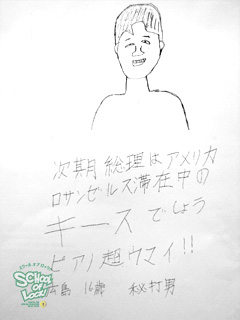 次期総理はアメリカ
ロサンゼルス滞在中の
キースでしょう
ピアノ超ウマイ!!
広島 16歳 秘打男
SCHOOL OF LOCK!